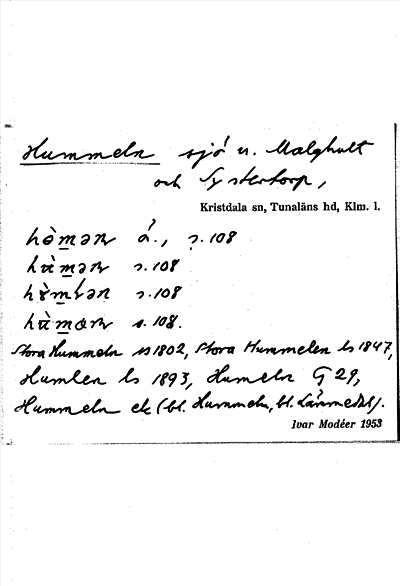 Hummeln sjö n. Malghult
och Systertorp,
Kristdala sn, Tunaläns hd, Klm. l.
hò̀mən å., s. 108
hù̀mən s. 108
s. 108
s. 108.
Stora Hummeln ss 1802, Stora Hummelen ls 1847,
Humlen ls 1893, Humeln G 29,
Hummeln ek (bl. Hummeln, bl.
Ivar Modéer 1953